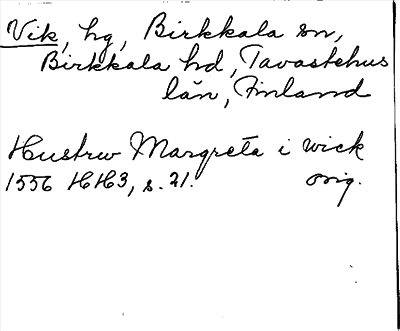 Vik, hg, Birkkala sn,
Birkkala hd, Tavastehus
län, Finland
Hustrw Margreta i wick
1556 HH3, s. 21. orig.